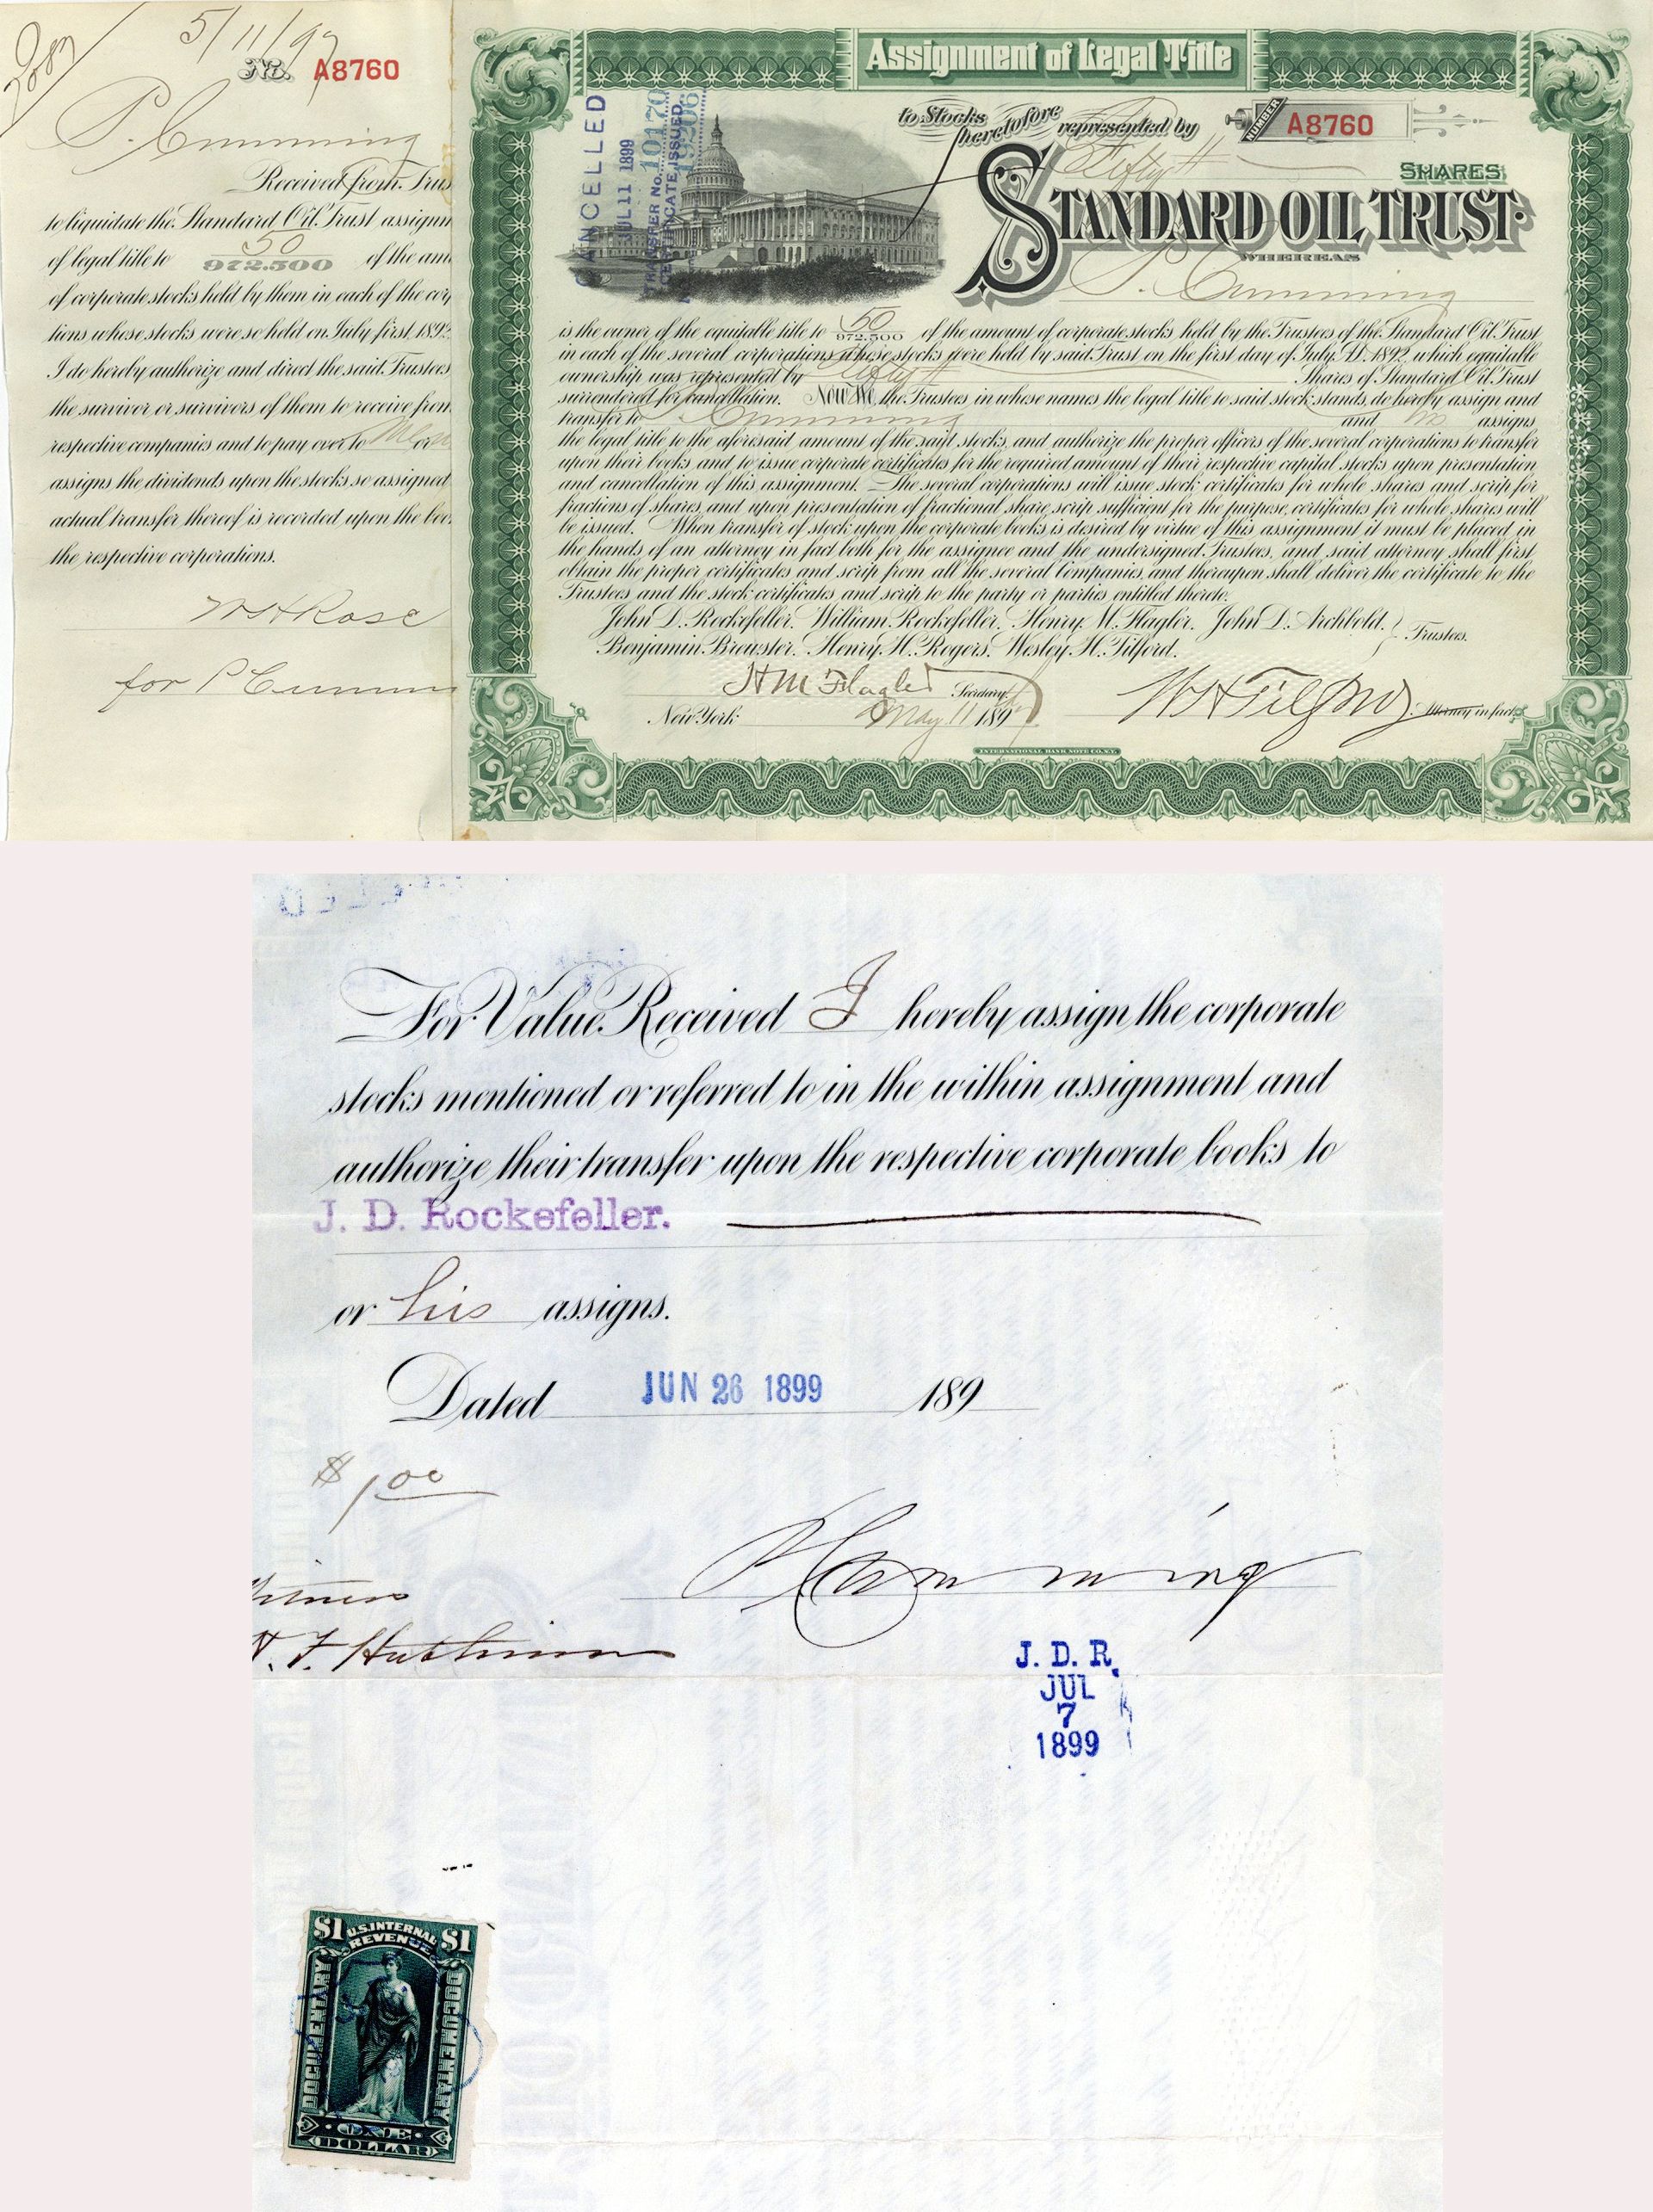 5/11/97
No. A8760
P. Cumming
Received from Trus
to liquidate the Standard Oil Trust assignm
of legal title to 50 of the am
972.500
of corporate stocks held by them in each of the cor
tions whose stocks were so held on July first, 1892.
I do hereby authorize and direct the said Trustees
the survivor or survivors of them to receive from
respective companies and to pay over to or
assigns the dividends upon the stocks so assigned
actual transfer thereof is recorded upon the boo
the respective corporations.
W H Rose
for P Cummin
Assignment of Legal Title
to Stocks heretofore represented by
NUMBER A8760
Fifty
SHARES
STANDARD OIL TRUST
WHEREAS
P. Cumming
CANCELLED
JUL 11 1899
TRANSFER No. 10170
CERTIFICATE ISSUED
19206
is the owner of the equitable title to 50 of the amount of corporate stocks held by the Trustees of the Standard Oil Trust
972.500
in each of the several corporations whose stocks were held by said Trust on the first day of July A.D. 1892, which equitable
ownership was represented by Fifty Shares of Standard Oil Trust
surrendered for cancellation. Now We, the Trustees, in whose names the legal title to said stock stands, do hereby assign and
transfer to P. Cumming and his assigns
the legal title to the aforesaid amount of the said stocks, and authorize the proper officers of the several corporations to transfer
upon their books and to issue corporate certificates for the required amount of their respective capital stocks upon presentation
and cancellation of this assignment. The several corporations will issue stock certificates for whole shares and scrip for
fractions of shares, and upon presentation of fractional share scrip sufficient for the purpose, certificates for whole shares will
be issued. When transfer of stock upon the corporate books is desired by virtue of this assignment it must be placed in
the hands of an attorney in fact both for the assignee and the undersigned Trustees, and said attorney shall first
obtain the proper certificates and scrip from all the several Companies, and thereupon shall deliver the certificate to the
Trustees and the stock certificates and scrip to the party or parties entitled thereto.
John D. Rockefeller. William Rockefeller. Henry M. Flagler. John D. Archbold.
Benjamin Brewster. Henry H. Rogers. Wesley H. Tilford.
Trustees.
H M Flagler Secretary.
W H Tilford Attorney in fact.
New York May 11 1897
INTERNATIONAL BANK NOTE CO. N.Y.
For Value Received I hereby assign the corporate
stocks mentioned or referred to in the within assignment and
authorize their transfer upon the respective corporate books to
J. D. Rockefeller.
or his assigns.
Dated JUN 26 1899 189
$1.00
P Cumming
J. D. R.
JUL
7
1899
$1 U.S. INTERNAL REVENUE $1
DOCUMENTARY
DOCUMENTARY
ONE
DOLLAR